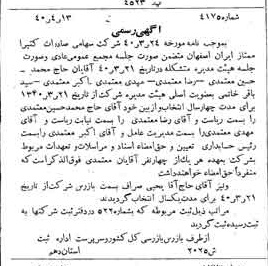 شماره ۴۱۷۵ ۱۳ر۴ر۴۰
آگهی رسمی
بموجب نامه مورخه ۲۴ر۳ر۴۰ شرکت سهامی صادرات کتیرا
ممتاز ایران اصفهان منضمن صورت جلسه مجمع عمومی عادی وصورت
جلسه هیئت مدیره متشکله درتاریخ ۲۱ر۳ر۴۰ آقایان حاج محمد
حسین معتمدی ـ رضا معتمدی ـ مهدی معتمدی ـ اکبر معتمدی ـ سید
باقر خاتمی بعضویت اصلی هیئت مدیره شرکت از تاریخ ۲۱ر۳ر۱۳۴۰
برای مدت چهارسال انتخاب وازبین خود آقای حاج محمدحسین معتمدی
را بسمت ریاست و آقای رضا معتمدی را بسمت نیابت ریاست و آقای
مهدی معتمدی را بسمت مدیریت عامل و آقای اکبر معتمدی را بسمت
رئیس حسابداری تعیین و حق امضاء اسناد و مراسلات و تعهدات مربوط
بشرکت بعهده هر یک از چهارنفر آقایان معتمدی فوق الذکر است که
منفرداً حق امضاء خواهند داشت
ونیز آقای حاج آقا یحیی صراف بسمت بازرس شرکت از تاریخ
۲۱ر۳ر۴۰ برای مدت یکسال انتخاب گردیدند
مراتب ذیل ثبت مربوطه که بشماره ۵۲۲ در دفتر ثبت شرکتها به
ثبت رسیده ثبت گردید
ازطرف بازرس بازرسی کل کشور وسرپرست اداره ثبت
ش ۲۰۲۵ استان دهم